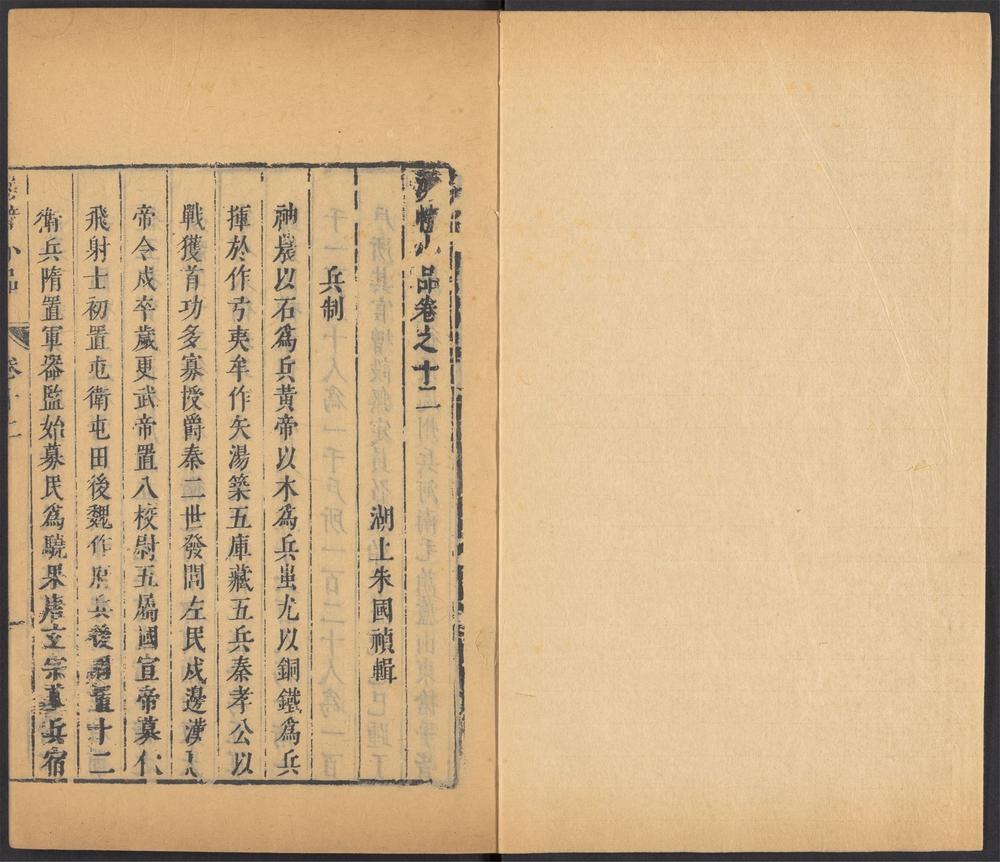 湧幢小品卷之十二
湖上朱國禎輯
兵制
神農以石爲兵黃帝以木爲兵蚩尤以銅鐵爲兵
揮於作弓夷牟作矢湯築五庫藏五兵秦孝公以
戰獲首功多寡授爵秦二世發閭左民戍邊漢
帝令戍卒歲更武帝置八校尉五屬國宣帝募佽
飛射士初置屯衛屯田後魏作府兵後周置十二
衛兵隋置軍器監始募民爲驍果唐玄宗募兵宿
小品 卷十二